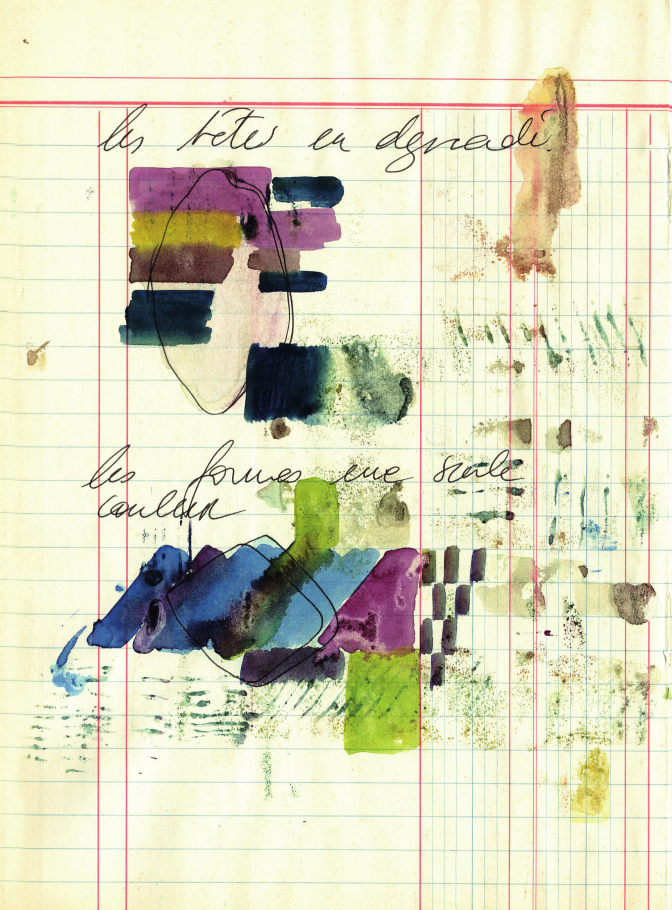 les têtes en degradé.
les formes une seule
couleur